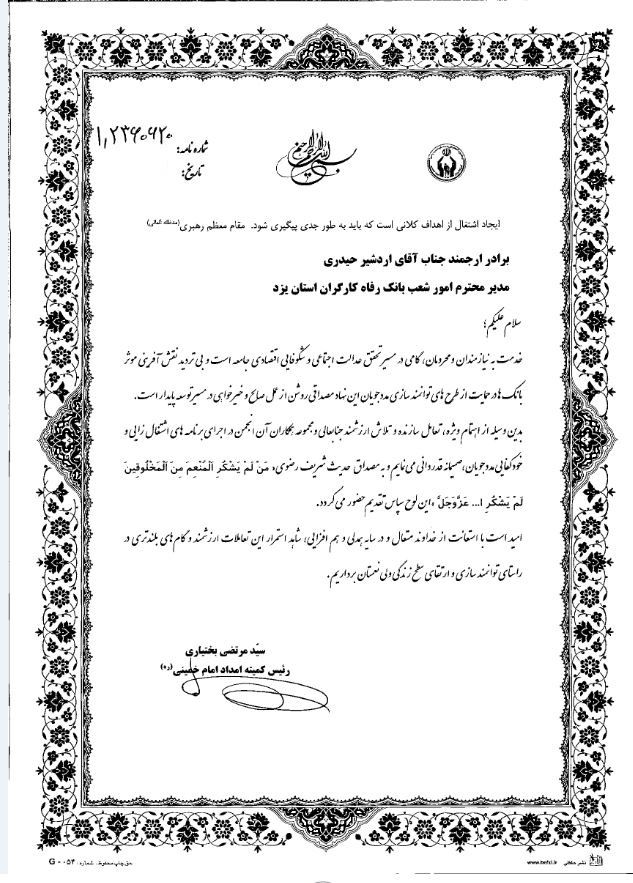 شماره نامه: ۱,۲۳۶۰۶۲۰
تاریخ:
ایجاد اشتغال از اهداف کلانی است که باید به طور جدی پیگیری شود. مقام معظم رهبری (مدظله العالی)
برادر ارجمند جناب آقای اردشیر حیدری
مدیر محترم امور شعب بانک رفاه کارگران استان یزد
سلام علیکم؛
خدمت به نیازمندان و محرومان، گامی در مسیر تحقق عدالت اجتماعی و شکوفایی اقتصادی جامعه است و بی تردید نقش آفرینی موثر
بانک ها در حمایت از طرح های توانمند سازی مددجویان این نهاد مصداقی روشن از عمل صالح و خیرخواهی در مسیر توسعه پایدار است.
بدین وسیله از اهتمام ویژه، تعامل سازنده و تلاش ارزشمند جنابعالی و مجموعه همکاران آن انجمن در اجرای برنامه های اشتغال زایی و
خودکفایی مددجویان، صمیمانه قدردانی می نمایم و به مصداق حدیث شریف رضوی، مَنْ لَمْ یَشْکُرِ الْمُنْعِمَ مِنَ الْمَخْلُوقِینَ
لَمْ یَشْکُرِ ا... عَزَّوَجَلَّ، این لوح سپاس تقدیم حضور می گردد.
امید است با استعانت از خداوند متعال و در سایه همدلی و هم افزایی، شاهد استمرار این تعاملات ارزشمند و گام های بلندتری در
راستای توانمند سازی و ارتقای سطح زندگی ولی نعمتان برداریم.
سیّد مرتضی بختیاری
رئیس کمیته امداد امام خمینی (ره)
حق چاپ محفوظ. شماره: G - ۰۵۴